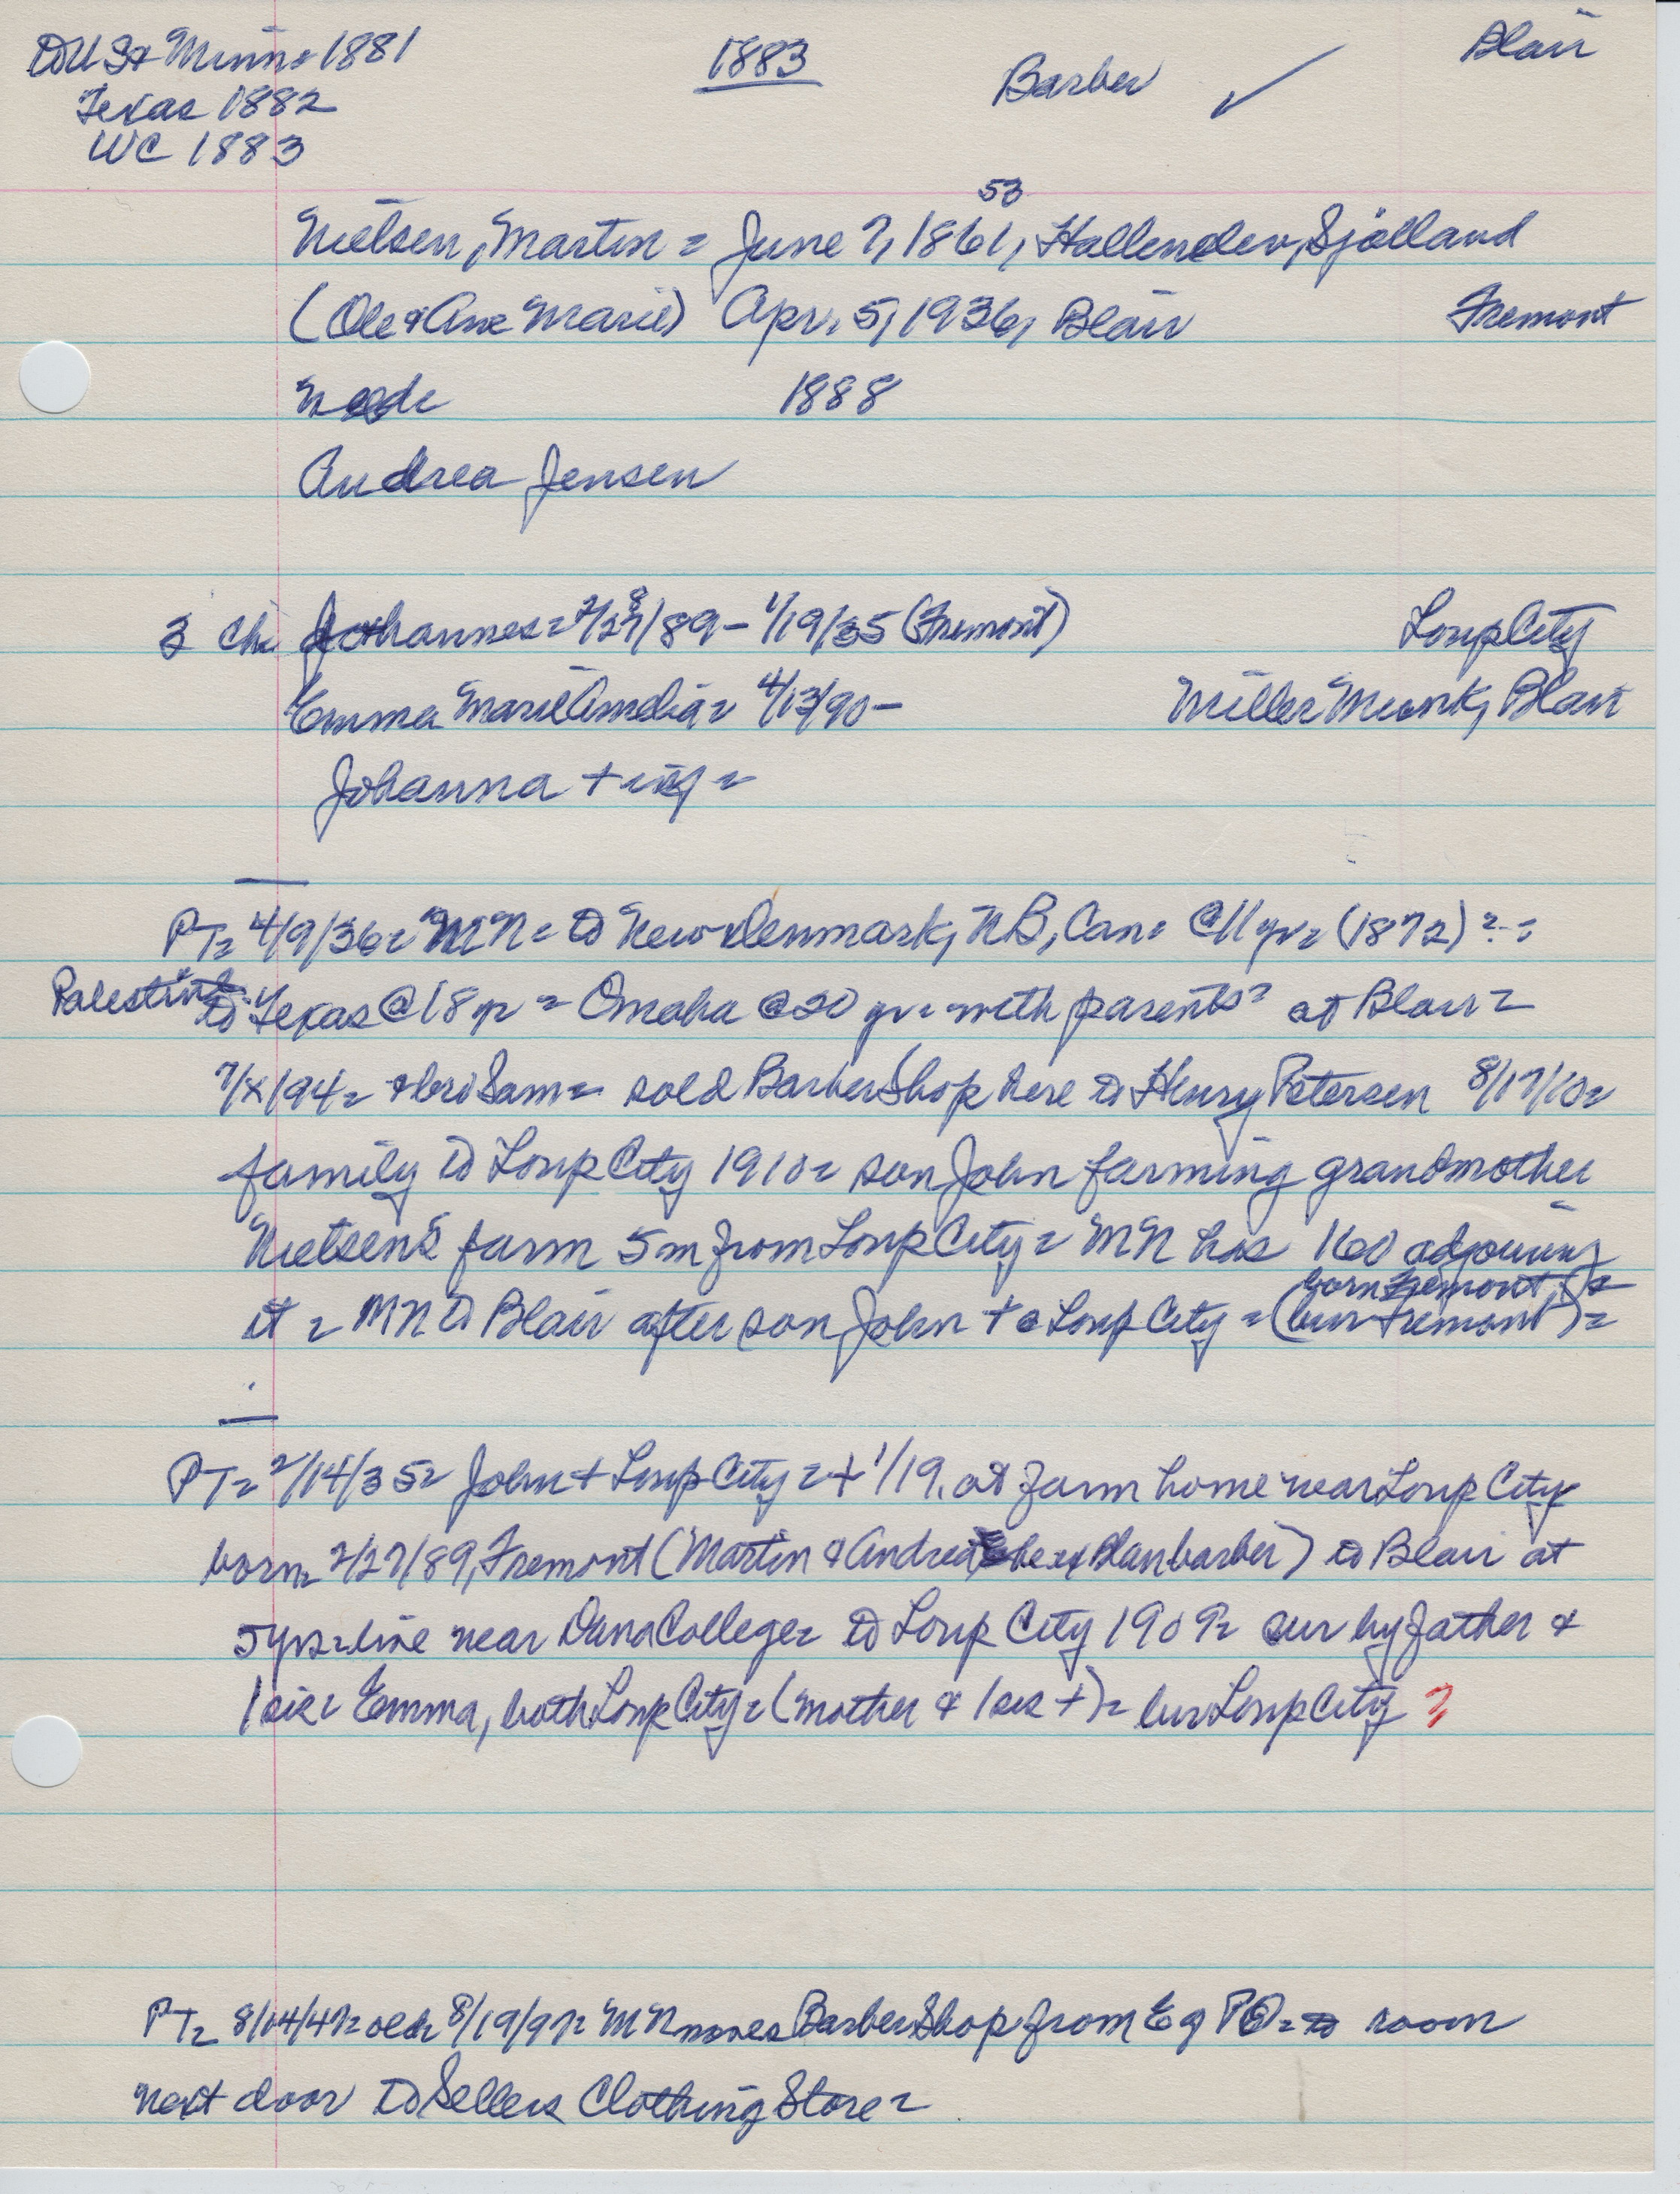 to U St Minn = 1881
1883
Barber ✓
Blair
Texas 1882
WC 1883
53
Nielsen, Martin = June 7, 1861, Hallenslev, Sjölland
(Ole & Ane Marie) Apr. 5, 1936, Blair
Fremont
1888
Andrea Jensen
3 Chi Johannes = 2/27/89 - 1/19/35 (Fremont)
Loup City
Emma Marie Amelia = 4/13/90 -
Miller Munk, Blair
Johanna + inf =
PT = 4/9/36 = MN = to New Denmark, NB, Can = @ 11 yr = (1872) ? =
Palestine
to Texas @ 18 yr = Omaha @ 20 yr = with parents? at Blair =
7/x/94 = & bro Sam = sold Barber Shop here to Henry Petersen 8/17/10 =
family to Loup City 1910 = son John farming grandmother
Nielsen's farm 5 m from Loup City = MN has 160 adjoining
born Fremont
it = MN to Blair after son John + @ Loup City = (bur Fremont) =
PT = 2/14/35 = John + Loup City = + 1/19. at farm home near Loup City
born = 2/27/89, Fremont (Martin & Andrea Blair barber) to Blair at
5 yrs = live near Dana College = to Loup City 1909 = sur by father &
1 sis = Emma, both Loup City = (mother & 1 sis +) = bur Loup City ?
PT = 8/14/47 = old = 8/19/97 = MN moves Barber Shop from E of PO = to room
next door to Sellers Clothing Store =